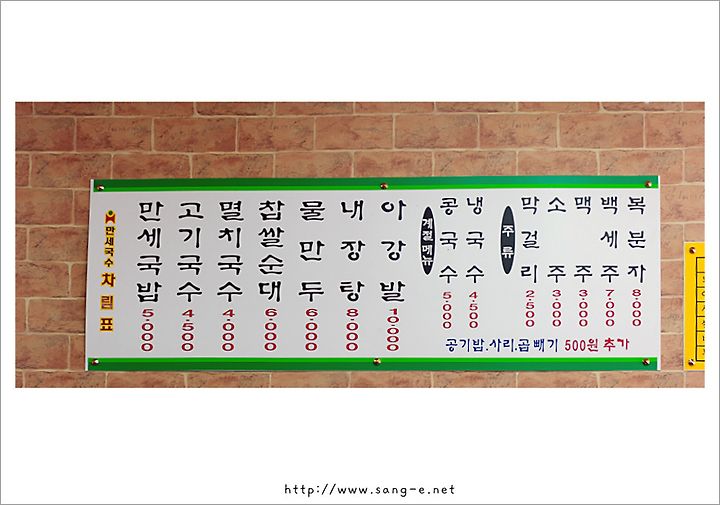 만세국수 차림표
만세국밥 5.000
고기국수 4.500
멸치국수 4.000
찹쌀순대 6.000
물만두 6.000
내장탕 8.000
아강발 10.000
계절메뉴
콩국수 5.000
냉국수 4.500
주류
막걸리 2.500
소주 3.000
맥주 3.000
백세주 7.000
복분자 8.000
공기밥.사리.곱빼기 500원 추가
http://www.sang-e.net